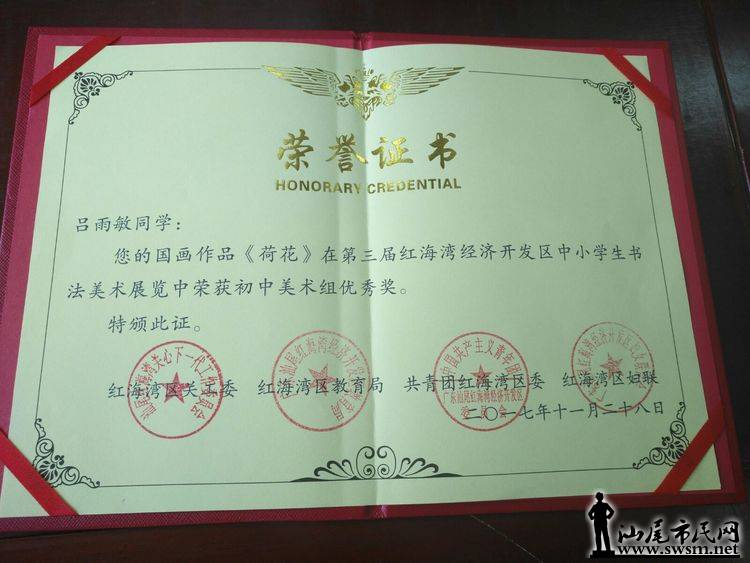 荣誉证书
HONORARY CREDENTIAL
吕雨敏同学：
您的国画作品《荷花》在第三届红海湾经济开发区中小学生书
法美术展览中荣获初中美术组优秀奖。
特颁此证。
红海湾区关工委 红海湾区教育局 共青团红海湾区委 红海湾区妇联
二〇一七年十一月二十八日
中国共产主义青年团
广东汕尾红海湾经济开发区
委员会
汕尾市民网
www.swsm.net